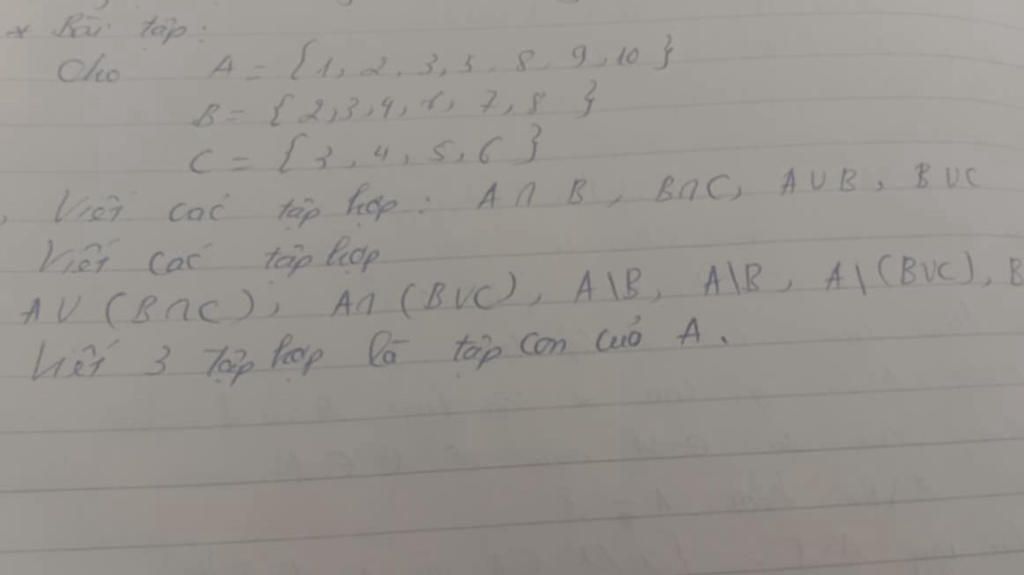 * Bài tập:
Cho A = {1, 2, 3, 5, 8, 9, 10}
B = {2, 3, 4, 6, 7, 8}
C = {3, 4, 5, 6}
, Viết các tập hợp: A ∩ B, B∩C, A∪B, B∪C
Viết các tập hợp
A∪(B∩C), A∩(B∪C), A\B, A\B, A\(B∪C), B
Viết 3 tập hợp là tập con của A.